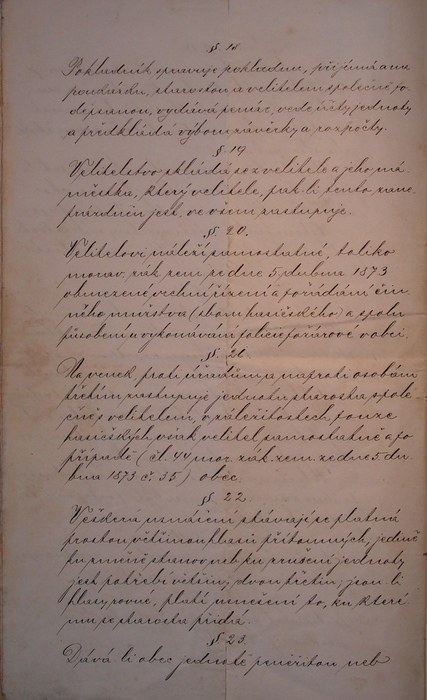 §. 18.
Pokladník spravuje pokladnu, přijímá na
poukázku, starostou a velitelem společně po-
depsanou, vydává peníze, vede účty jednoty
a předkládá výboru závěrky a rozpočty.
§. 19.
Velitelstvo skládá se z velitele a jeho ná-
městka, který velitele, pak-li tento zane-
prázdněn jest, ve všem zastupuje.
§. 20.
Veliteli náleží samostatné, toliko
morav. zák. zem. ze dne 5. dubna 1873
obmezené, vrchní řízení a pořádání čin-
ného mužstva (sboru hasičského) a spolu
působení u vykonávání policie požárové v obci.
§. 21.
Na venek, proti úřadům a naproti osobám
třetím zastupuje jednotu starosta spole-
čně s velitelem, v záležitostech pouze
hasičských, však velitel samostatně a po
případě (čl. 44 mor. zák. zem. ze dne 5. du-
bna 1873 č. 35) obec.
§. 22.
Veškerá usnášení stávají se platná
prostou většinou hlasů přítomných, jedině
ku změně stanov neb ku zrušení jednoty
jest potřebí většiny dvou třetin; jsou-li
hlasy rovné, platí usnešení to, ku které-
mu se starosta přidá.
§. 23.
Dává-li obec jednotě peněžitou neb